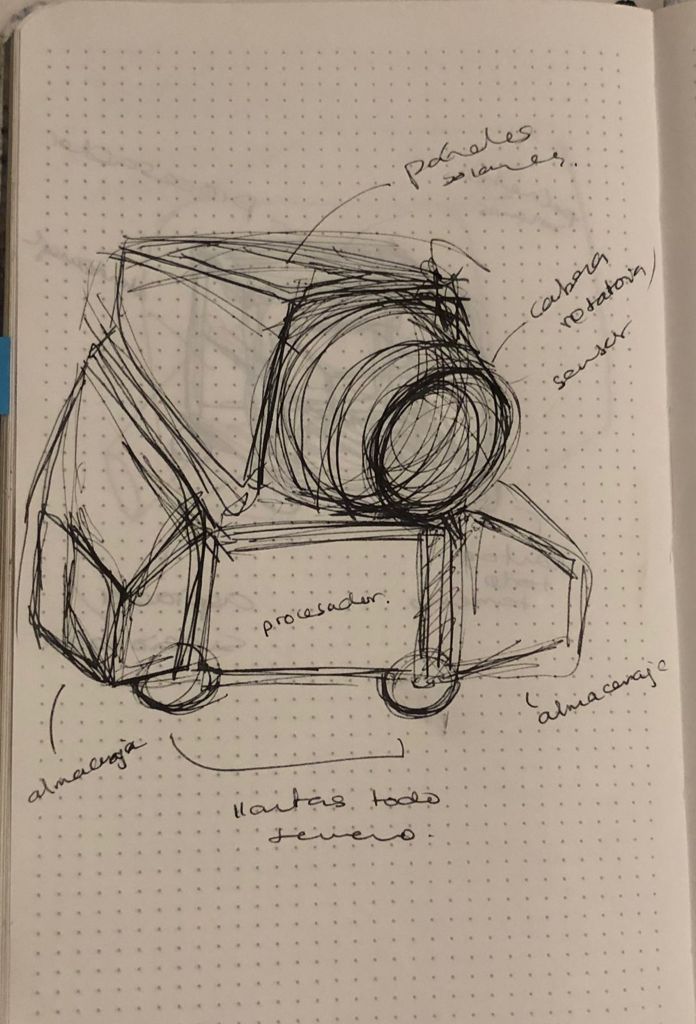 páneles
solares.
cabeza
rotatoria/
sensor
procesador.
almacenaje
almacenaje
llantas todo
terreno.